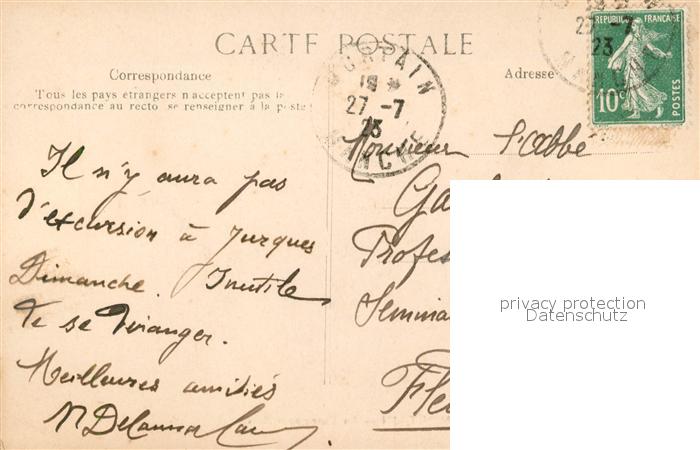 CARTE POSTALE
Correspondance
Adresse
Tous les pays étrangers n'acceptent pas la
correspondance au recto, se renseigner à la poste
MORTAIN
27 -7
23
MANCHE
27 -7
23
REPUBLIQUE FRANÇAISE
10c
POSTES
Il n'y aura pas
d'excursion à Jurques
Dimanche. Inutile
de se déranger.
Meilleures amitiés
Monsieur l'abbé
Profes
Semina
Fle
privacy protection
Datenschutz